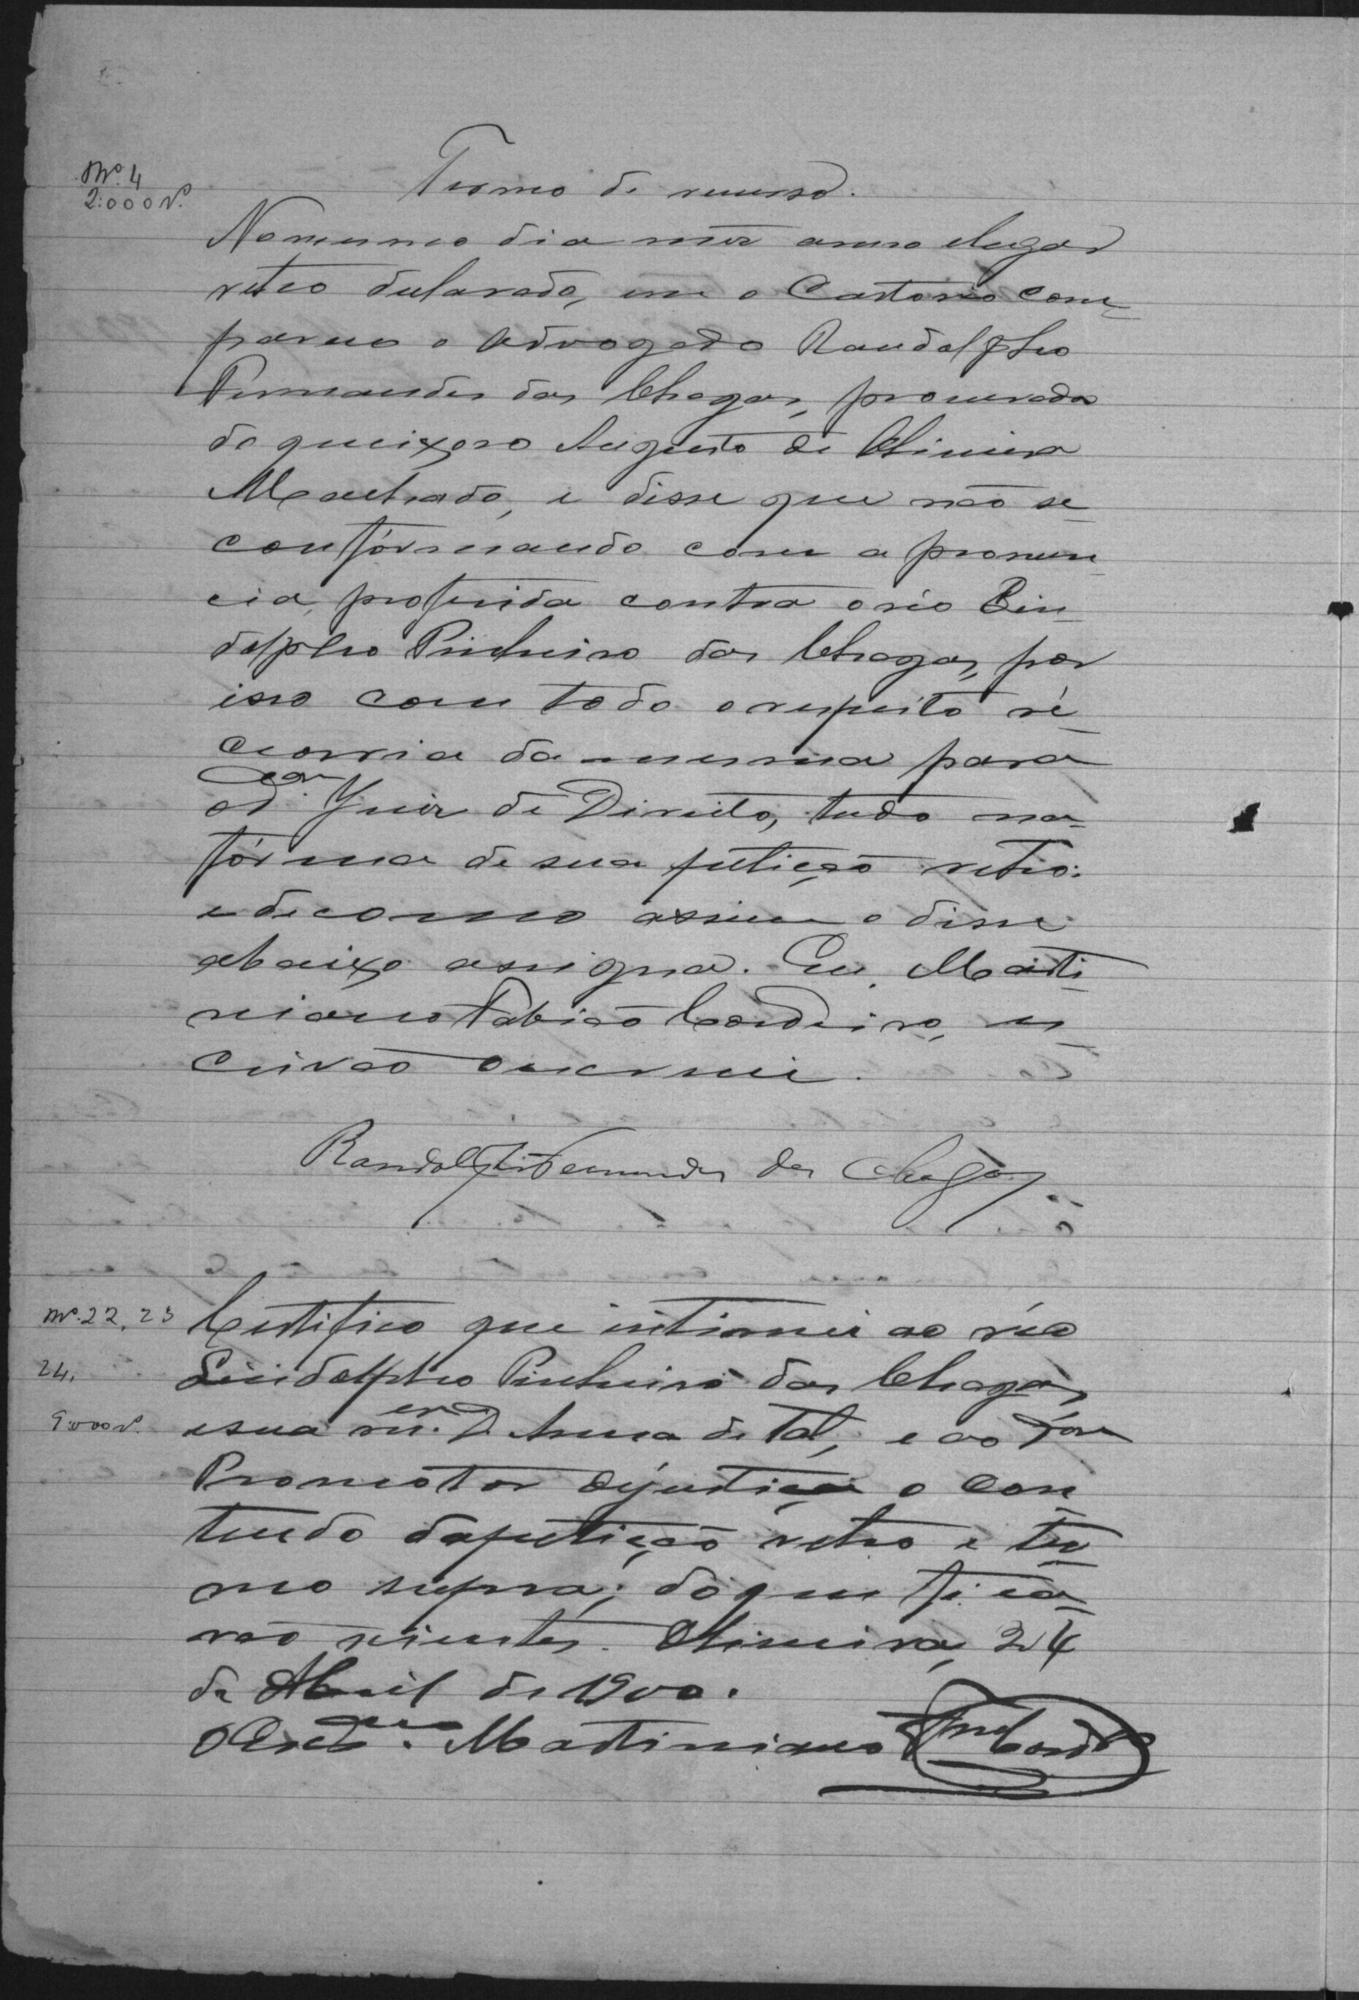 Nº. 4
2:000 rs.
Termo de recurso.
No mesmo dia mez anno e lugar
retro declarado, em o Cartorio com-
pareceo o Advogado Randolpho
Fernandes das Chagas, procurador
do queixoso Augusto de Oliveira
Machado, e disse que não se
confórmando com a pronun-
cia, proferida contra o réo Lin-
dolpho Pinheiro das Chagas, por
isso com todo o respeito re-
corria da mesma para
o Dor. Juiz de Direito, tudo na
fórma de sua petição retro:
e de como assim o disse
abaixo assigna. Eu, Marti-
niano Fabião Cordeiro, es-
crivão o escrevi.
Randolpho Fernandes das Chagas
Nº. 22, 23
24.
9:000 rs.
Certifico que intimei ao réo
Lindolpho Pinheiro das Chagas,
e sua D. Anna de Tal, e ao
Promotor de justiça o con
teudo da petição retro e ter-
mo supra; do que fica-
rão scientes. Oliveira, 24
de Abril de 1900.
O Escrivão. Martiniano